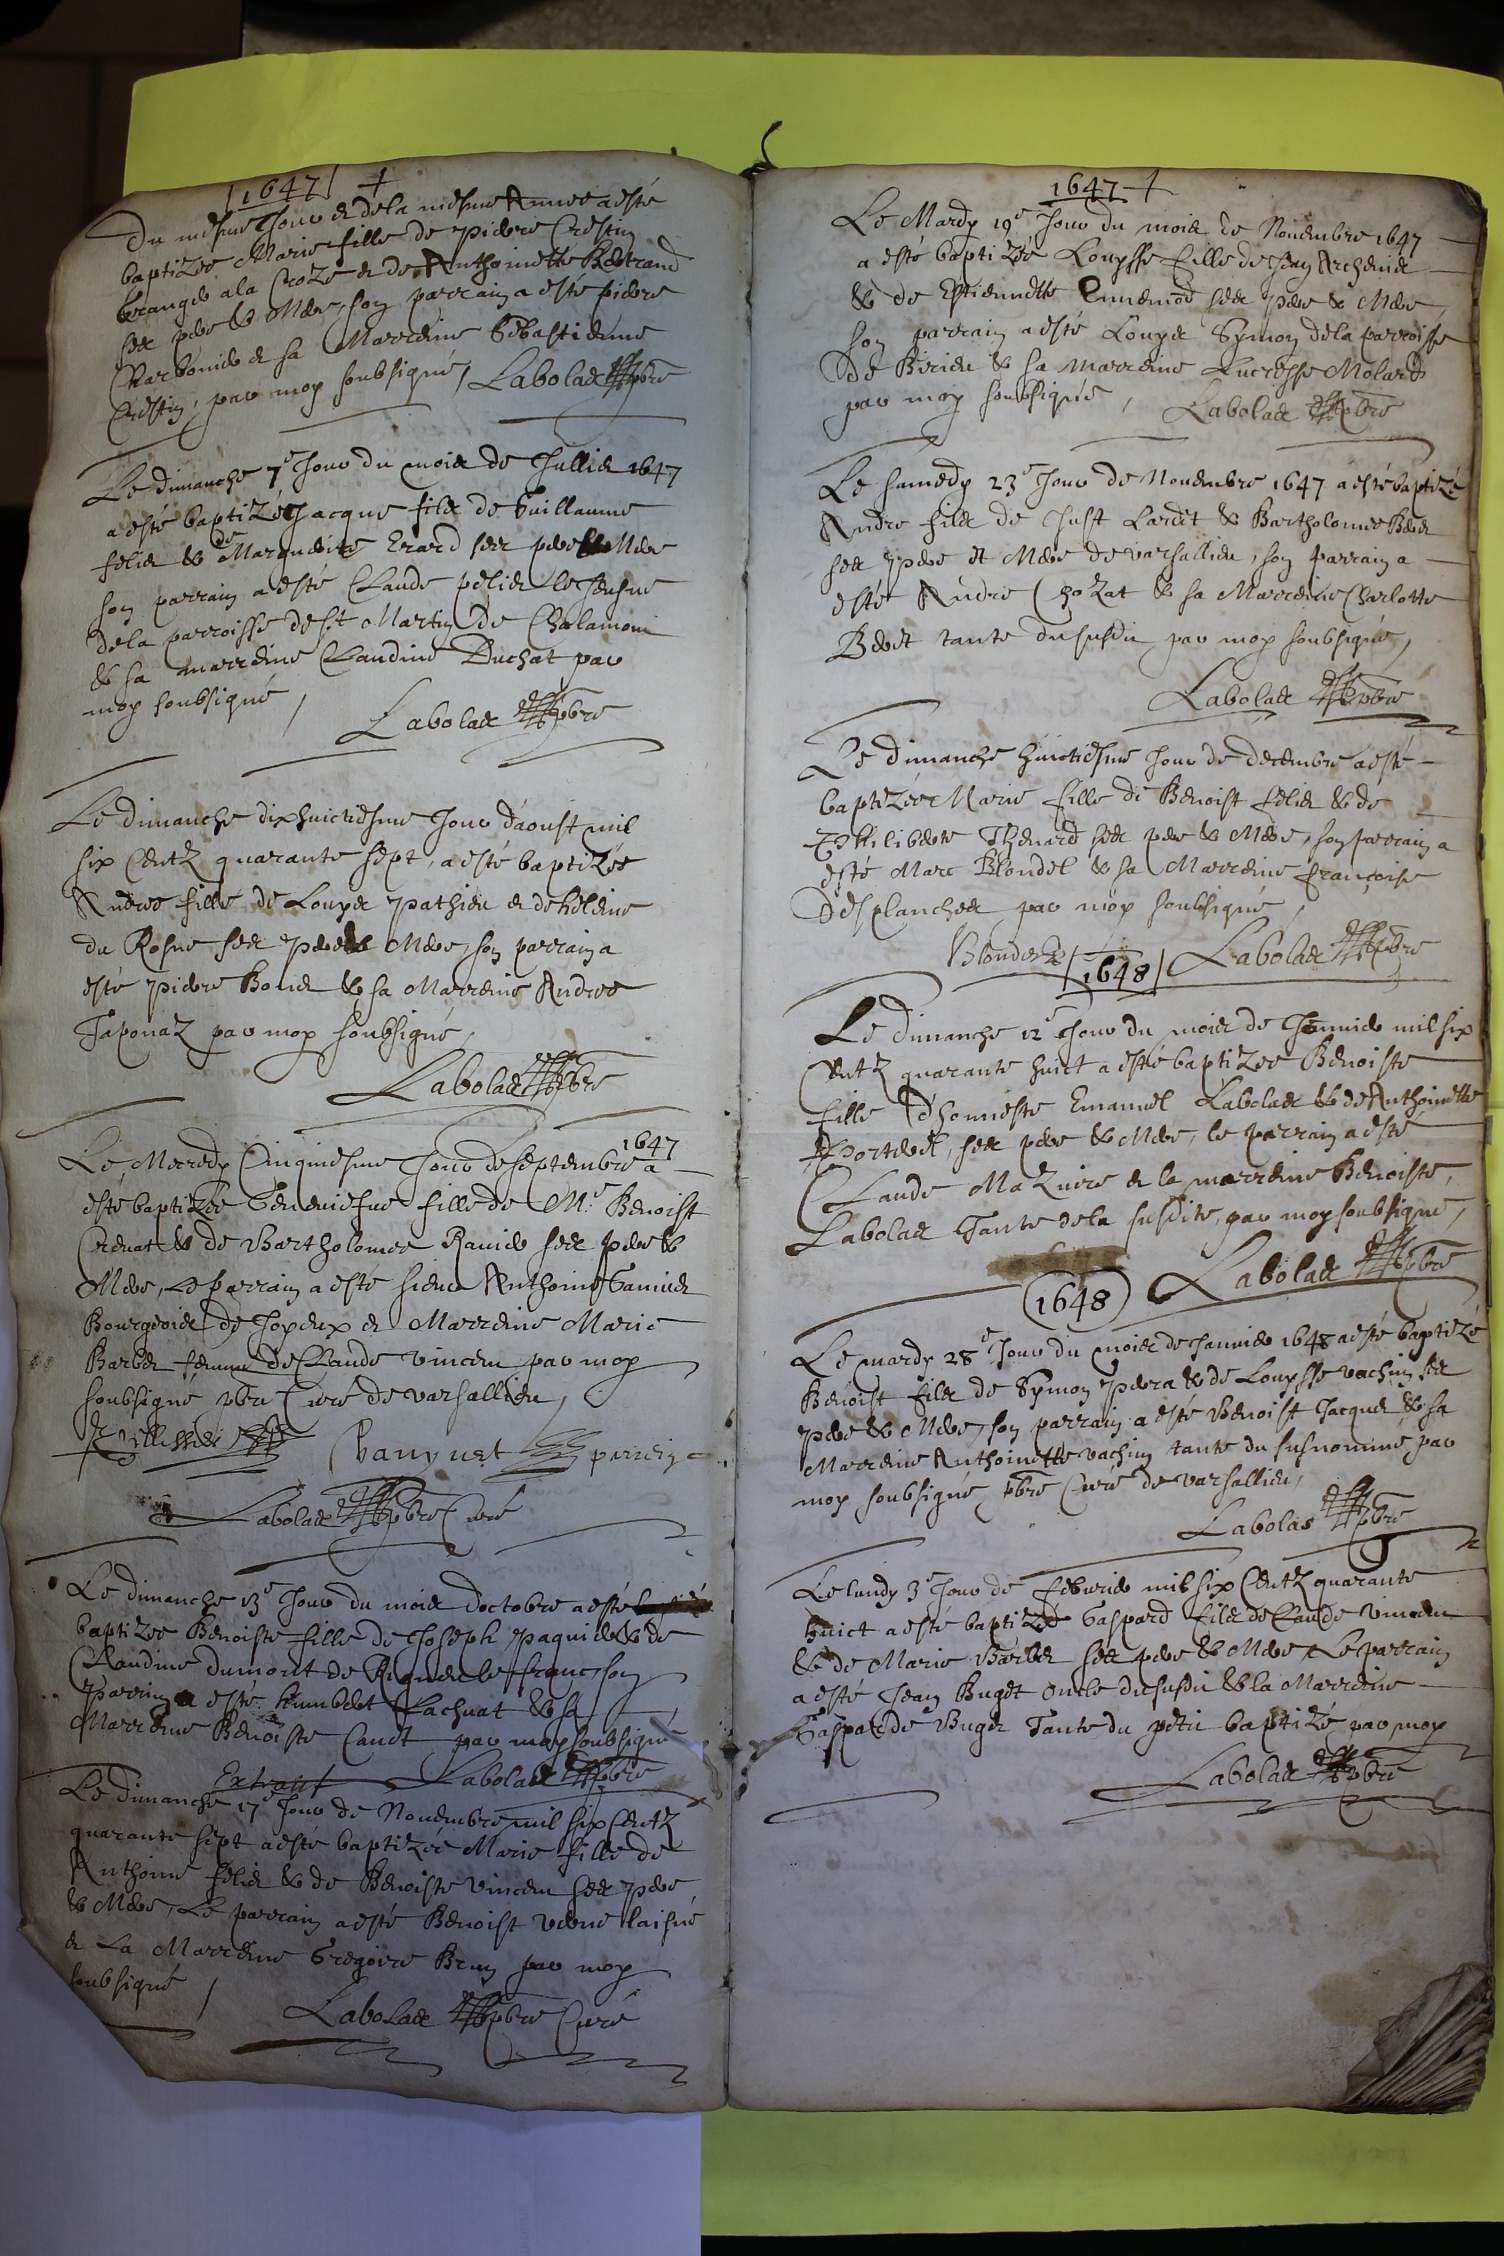 1647 +
Du mesme Jour et de la mesme Annee a esté
baptizee Marie fille de pierre Crestin
Granger a la Croze et de Anthoinette Bertrand
ses pere & Mere, son parrain a esté pierre
Charbonier et sa Marreine Sebastienne
Crestin, par moy soubsigné, Labolas pbre
Le dimanche 7e Jour du mois de Jullie 1647
a esté baptizé Jacque filz de Guillaume
felix & de Marguerite Erard ses pere & Mere
son parrain a esté Claude pelix le Jeusne
de la parroisse de st Martin de Chalamon
& sa marreine Claudine Duchat par
moy soubsigné,
Labolas pbre
Le dimanche dixhuictiesme Jour d'aoust mil
six Centz quarante sept, a esté baptizée
Andree fille de Louys pathieu et de héleine
du Rosne ses pere & Mere, son parrain a
esté pierre & sa Marreine Andree
Taponaz par moy soubsigné,
Labolas pbre
Le Mecredy Cinquiesme Jour de septembre 1647 a
esté baptizée Geneviefue fille de Me Benoist
& de Bartholomee Ravier ses pere &
Mere, Le parrain a esté sieur Anthoine
Bourgeois de Joyeux et Marreine Marie
Barbet femme de Claude vincent par moy
soubsigné pbre Curé de varsallieu,
Labolas pbre Curé
Le dimanche 13e Jour du mois d'octobre a esté
baptizee Benoiste fille de Joseph paquier & de
Claudine dumont de le franc, son
parrain a esté humbert Lachuat & sa
Marreine Benoiste Canet par moy soubsigné
Extrait Labolas pbre
Le dimanche 17e Jour de Nouembre mil six Centz
quarante sept a esté baptizée Marie fille de
Anthoine felix & de Benoiste vincent ses pere
& Mere, Le parrain a esté Benoist verne laisné
et La Marreine Gregoire Brun par moy
soubsigné,
Labolas pbre Curé
1647 +
Le Mardy 19e Jour du mois de Nouembre 1647
a esté baptizée Louysse fille de Jean
& de Estiennette ses pere & Mere,
son parrain a esté Louys Symon de la parroisse
De Birieu & sa marreine Lucresse Molard
par moy soubsigné, Labolas pbre
Le samedy 23e Jour de Nouembre 1647 a esté baptizé
Andre filz de Just Lardet & Bartholomee
ses pere et Mere de varsallieu, son parrain a
esté Andre Chozat & sa Marreine Charlotte
tante du susdit par moy soubsigné,
Labolas pbre
Le dimanche huictiesme Jour de decembre a esté
baptizée Marie fille de Benoist felix & de
Philiberte Thenard ses pere & Mere, son parrain a
esté Marc Blondel & sa Marreine françoise
Desplanches par moy soubsigné,
Blondel Labolas pbre
1648
Le dimanche 12e Jour du mois de Januier mil six
Centz quarante huict a esté baptizee Benoiste
fille d'honneste Emanuel Labolas & de Anthoinette
ses pere & Mere, le parrain a esté
Claude Mazuire et la marreine Benoiste,
Labolas Tante de la susdite, par moy soubsigné,
Labolas pbre
1648
Le mardy 28e Jour du mois de Januier 1648 a esté baptizé
Benoist filz de Symon & de Louysse vachin ses
pere & Mere, son parrain a esté Benoist Jacques & sa
Marreine Anthoinette vachin tante du susnommé, par
moy soubsigné pbre Curé de varsallieu,
Labolas pbre
Le lundy 3e Jour de feburier mil six Centz quarante
huict a esté baptizé Gaspard filz de Claude vincent
& de Marie Barbet ses pere & Mere, Le parrain
a esté Jean Buget Oncle du susdit & la Marreine
Gasparde Buget Tante du petit baptizé par moy
Labolas pbre